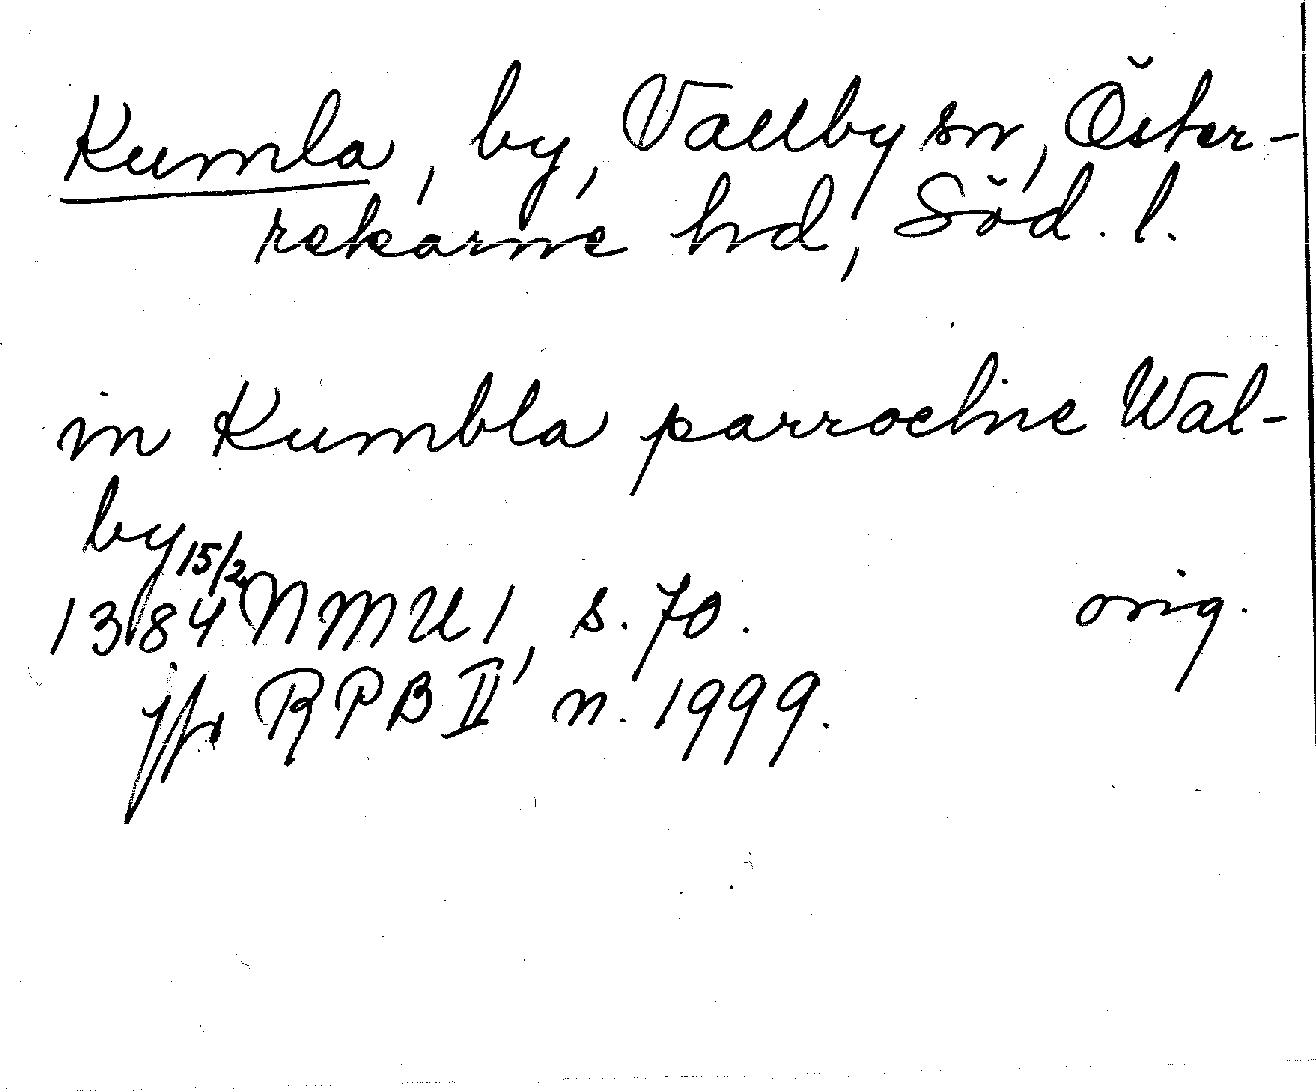 Kumla, by, Vallby sn, Öster-
rekarne hd, Söd. l.
in Kumbla parrochie Wal-
by
15/2
1384 NMU 1, s. 70. orig.
jfr RPB II n. 1999.